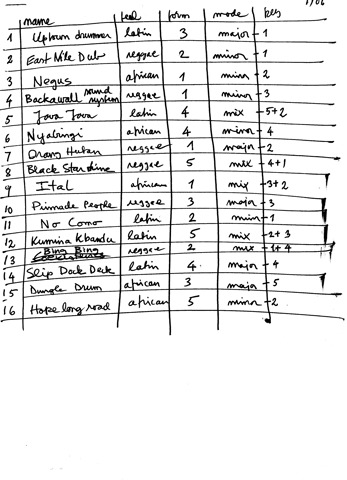 1/06
name feel form mode key
1 Uptown drummer latin 3 major - 1
2 East Nile Dub reggae 2 minor - 1
3 Negus african 1 minor - 2
4 Backawall sound system reggae 1 minor - 3
5 Java Java latin 4 mix - 5+2
6 Nyabingi african 4 minor - 4
7 Orang Hutan reggae 1 major - 2
8 Black Star line reggae 5 mix - 4+1
9 Ital african 1 mix - 3+2
10 Primade People reggae 3 major - 3
11 No Como latin 2 minor - 1
12 Kumina Kbandu latin 5 mix - 2+3
13 Bing Bing reggae 2 mix - 1+4
14 Slip Dock Deck latin 4 major - 4
15 Dungle Drum african 3 major - 5
16 Hope long road african 5 minor - 2